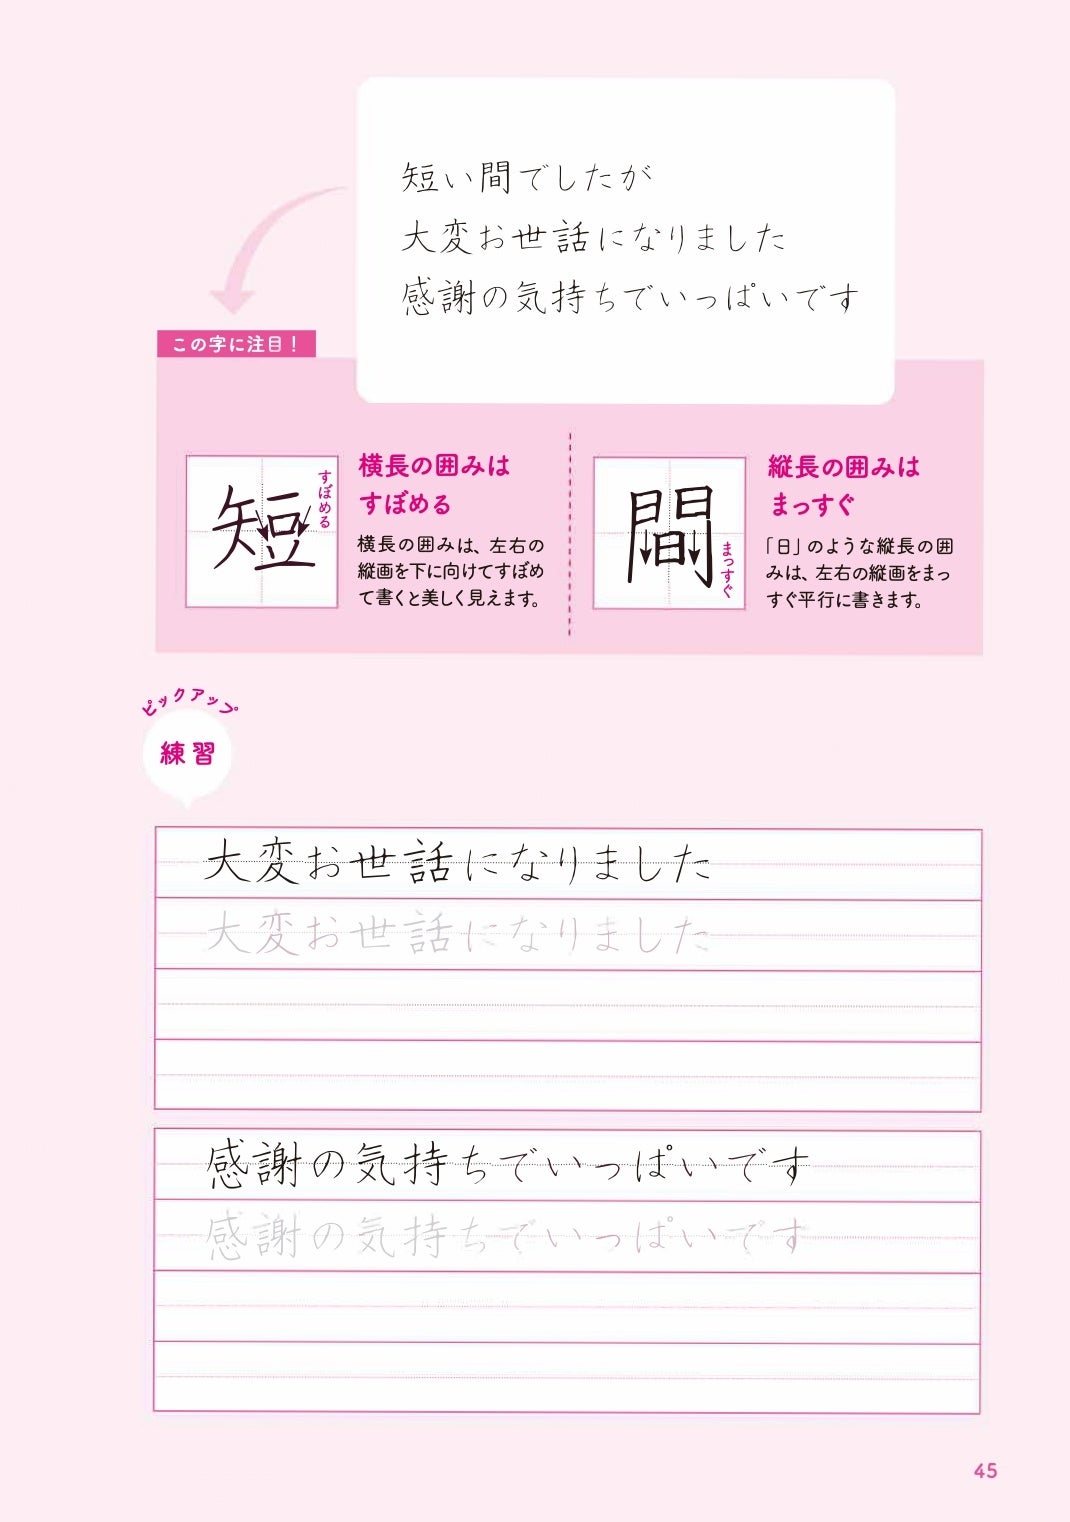 短い間でしたが
大変お世話になりました
感謝の気持ちでいっぱいです
この字に注目!
短
すぼめる
横長の囲みは
すぼめる
横長の囲みは、左右の
縦画を下に向けてすぼめ
て書くと美しく見えます。
間
まっすぐ
縦長の囲みは
まっすぐ
「日」のような縦長の囲
みは、左右の縦画をまっ
すぐ平行に書きます。
ピックアップ
練習
大変お世話になりました
大変お世話になりました
感謝の気持ちでいっぱいです
感謝の気持ちでいっぱいです
45